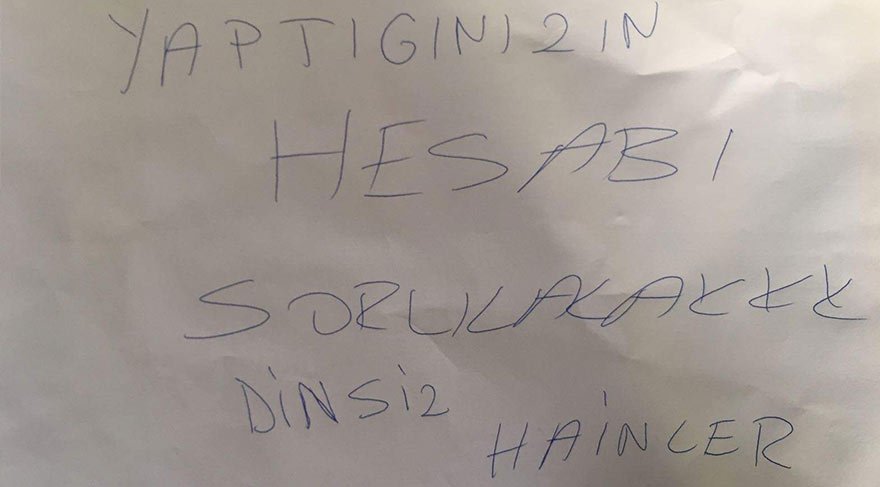 YAPTIGINIZIN
HESABI
SORLILACAKKKK
DİNSİZ
HAİNLER